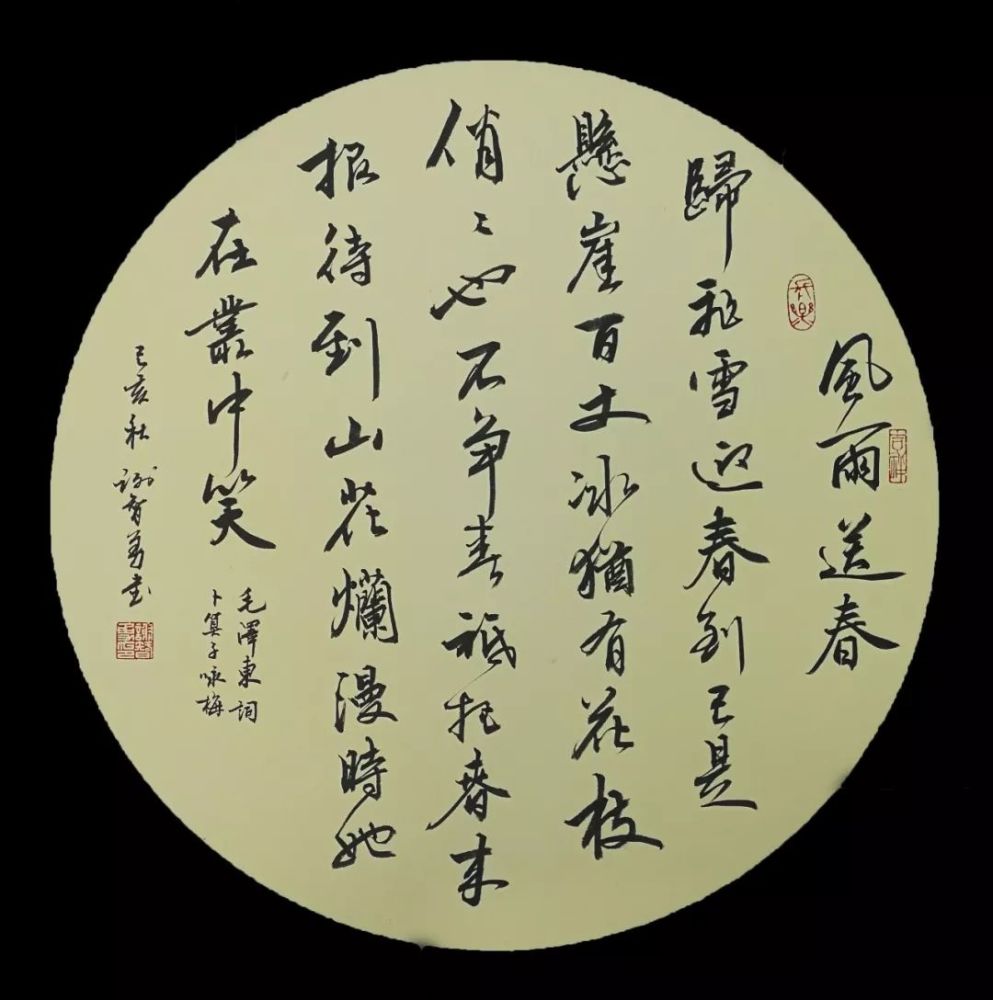 風雨送春
歸飛雪迎春到已是
懸崖百丈冰猶有花枝
俏〻也不争春祇把春来
报待到山花爛漫時她
在叢中笑
毛澤東詞
卜算子咏梅
己亥秋 谢智勇书
吉祥